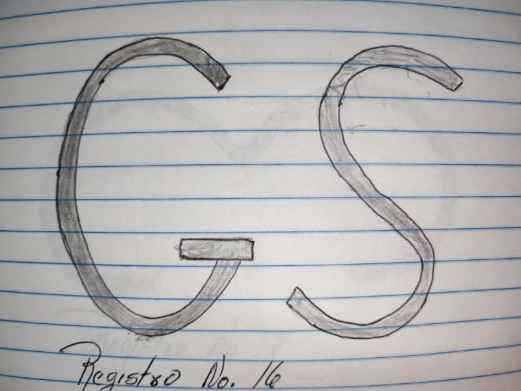 GS
Registro No. 16